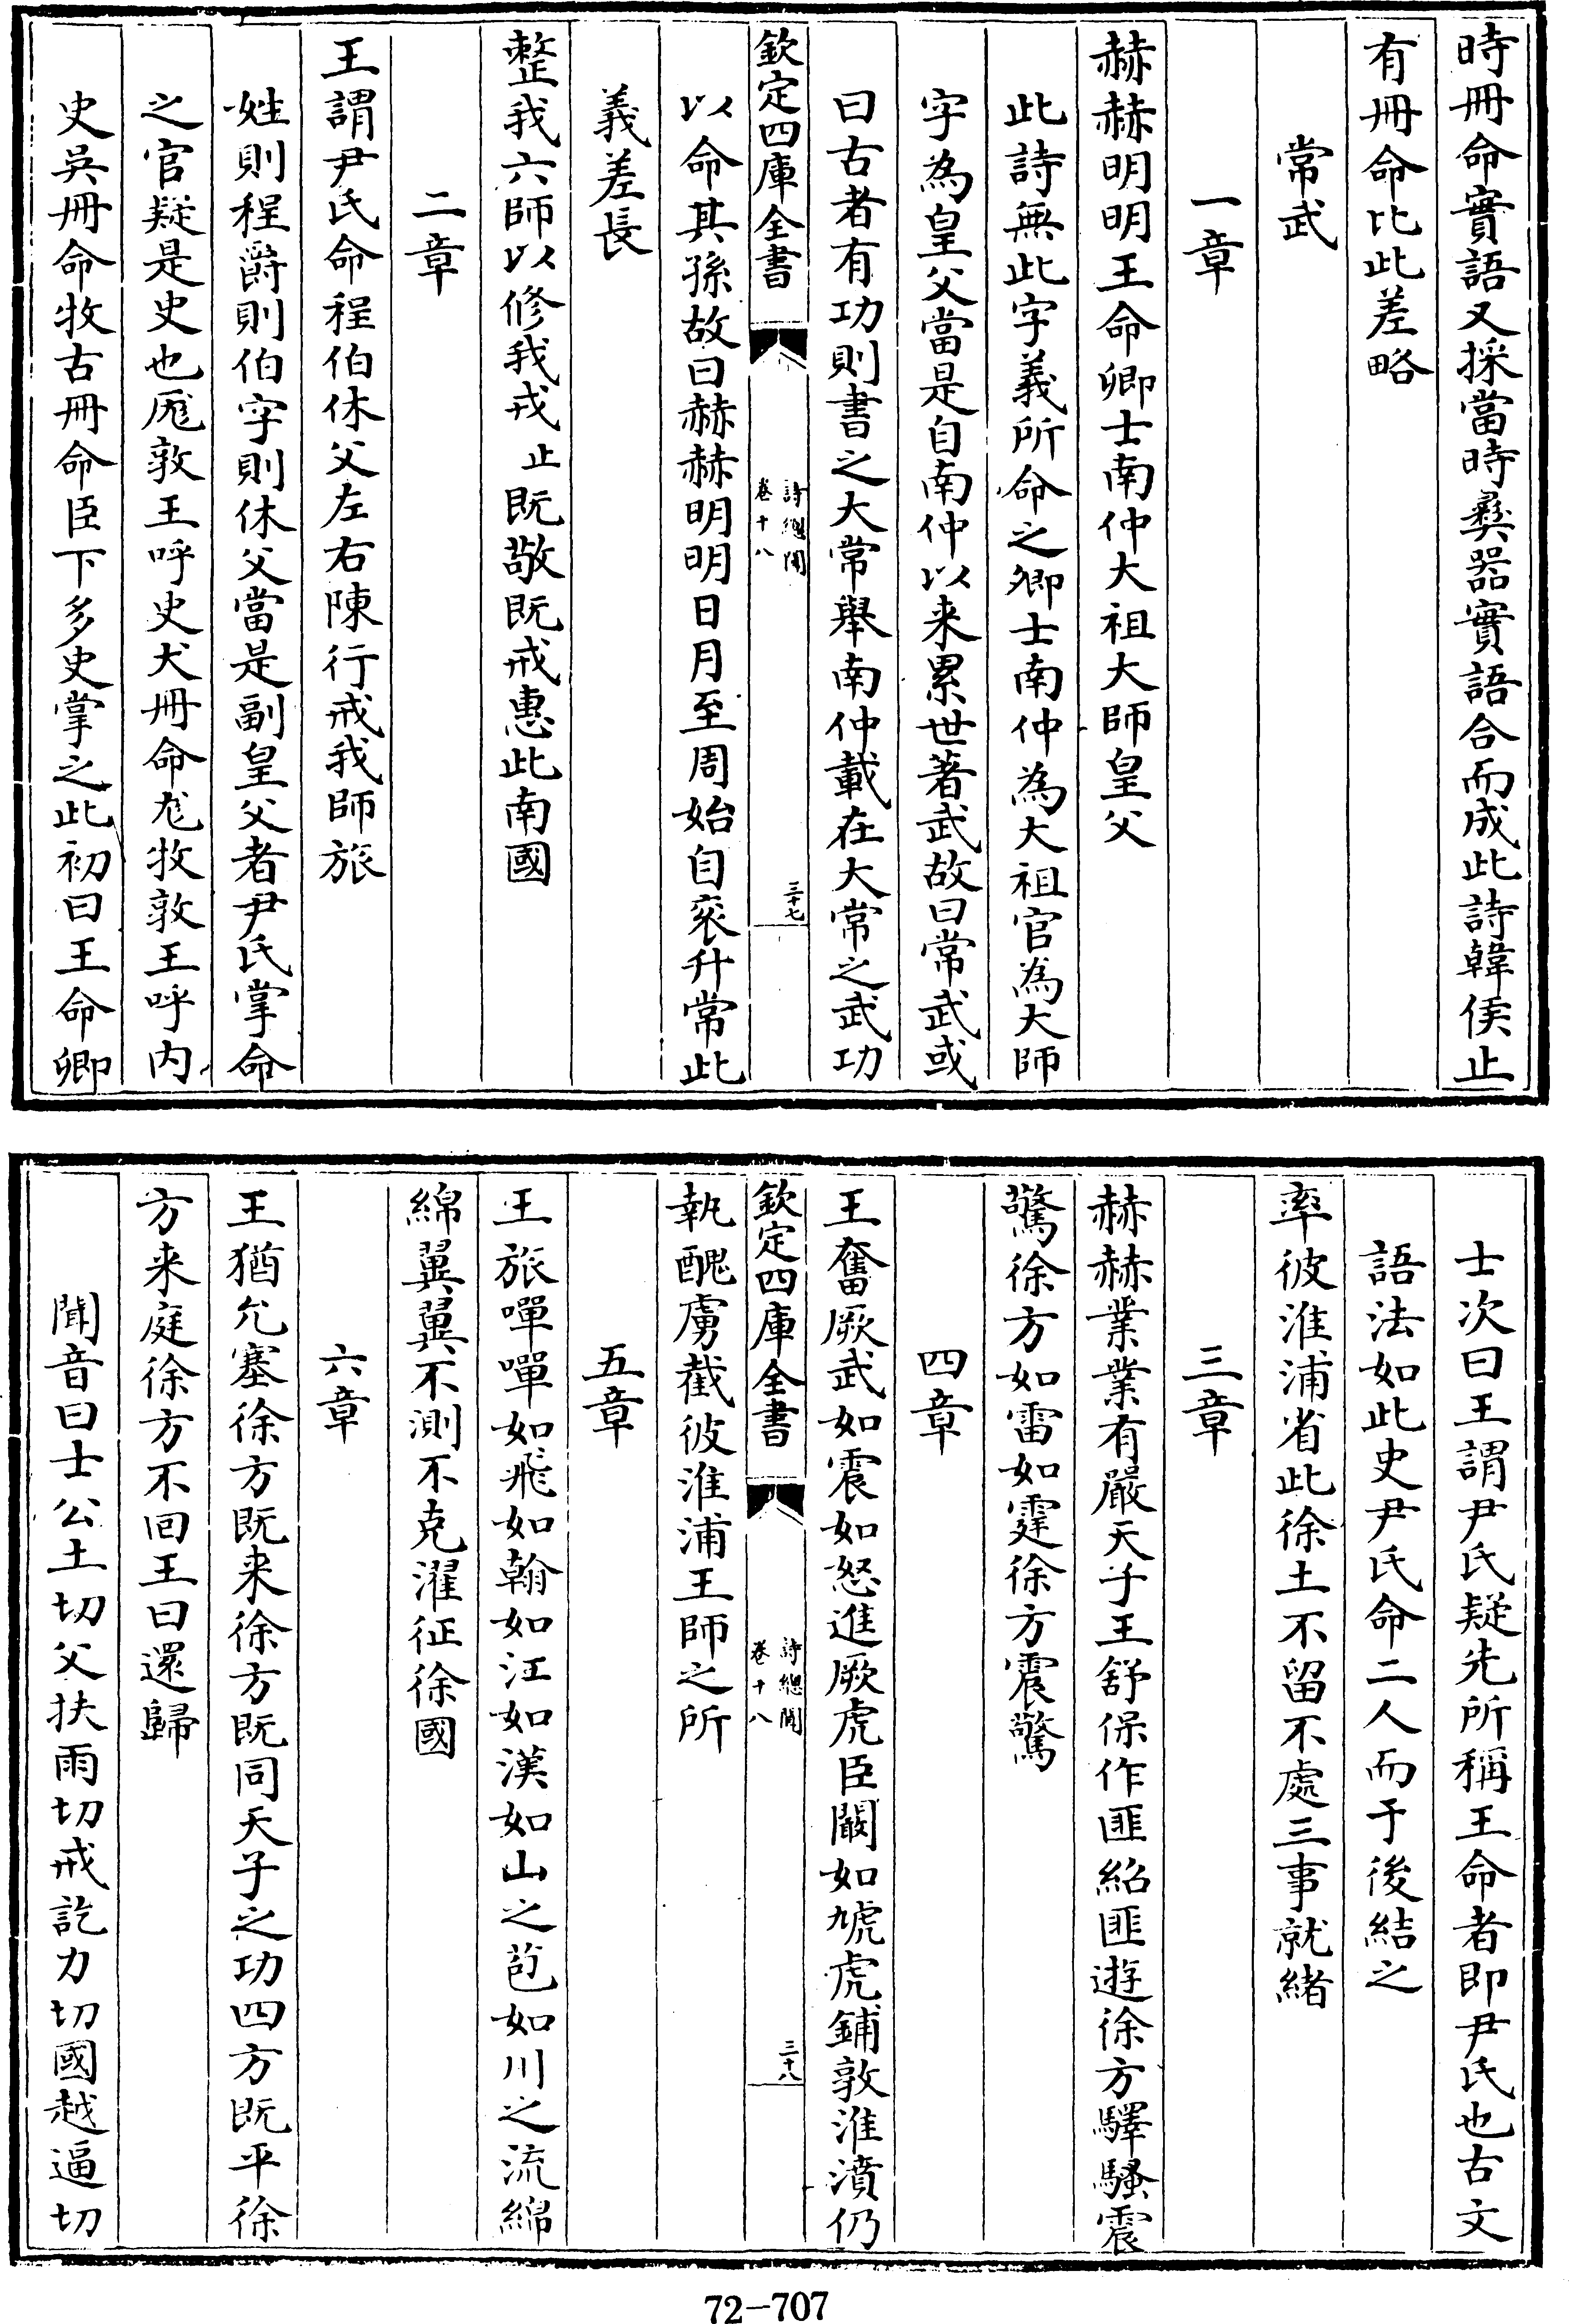 時冊命實語又採當時彞器實語合而成此詩韓侯止
有冊命比此差略
常武
一章
赫赫明明王命卿士南仲大祖大師皇父
此詩無此字義所命之卿士南仲為大祖官為大師
字為皇父當是自南仲以来累世著武故曰常武或
曰古者有功則書之大常舉南仲載在大常之武功
欽定四庫全書
詩總聞
卷十八
三十七
以命其孫故曰赫赫明明日月至周始自衮升常此
義差長
整我六師以修我戎止既敬既戒惠此南國
二章
王謂尹氏命程伯休父左右陳行戒我師旅
姓則程爵則伯字則休父當是副皇父者尹氏掌命
之官疑是史也敦王呼史冊命牧敦王呼内
史吳冊命牧古冊命臣下多史掌之此初曰王命卿
士次曰王謂尹氏疑先所稱王命者即尹氏也古文
語法如此史尹氏命二人而于後結之
率彼淮浦省此徐土不留不處三事就緒
三章
赫赫業業有嚴天子王舒保作匪紹匪遊徐方驛騷震
驚徐方如雷如霆徐方震驚
四章
王奮厥武如震如怒進厥虎臣闞如虓虎鋪敦淮濆仍
欽定四庫全書
詩總聞
卷十八
三十八
執醜虜截彼淮浦王師之所
五章
王旅嘽嘽如飛如翰如江如漢如山之苞如川之流綿
綿翼翼不測不克濯征徐國
六章
王猶允塞徐方既来徐方既同天子之功四方既平徐
方来庭徐方不回王曰還歸
聞音曰士公土切父扶雨切戒訖力切國越逼切
72-707